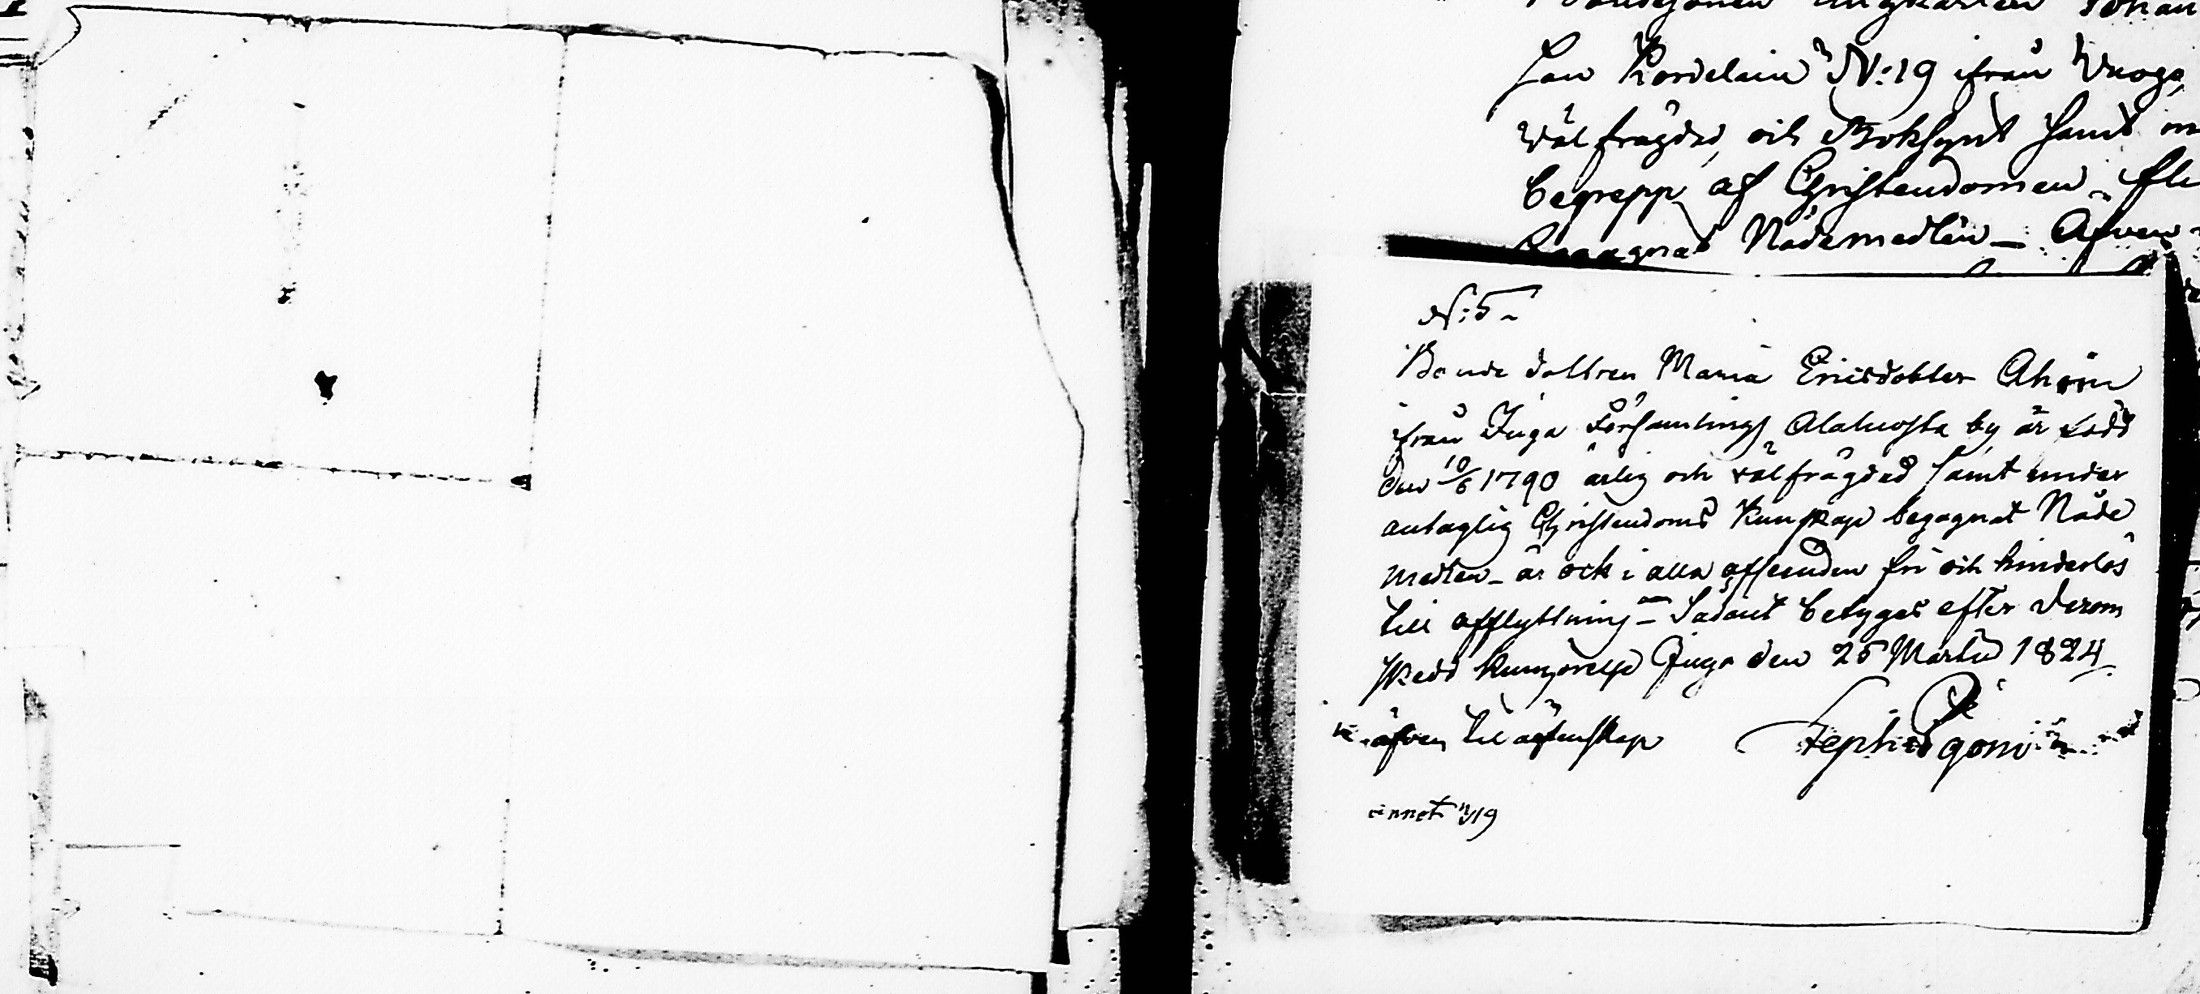 Bondesonen Ungkarlen Johan
son Kordelain N:19 ifrån
Välfrägdad, och Boksynt samt
begrepp af Christendomen
begagnat Nådemedlen _ Äfven
N:5
Bonde dottren Maria Ericsdotter
ifrån Juga Församlings Alaluosta by är född
den 10/6 1790 ärlig och välfrägdad samt under
antaglig Christendoms Kunskap begagnat Nåde
medlen _ är ock i alla afseenden fri och hinderlös
till afflyttning _ Sådant betygas efter derom
skedd kungörelse Juga den 25 Martii 1824
äfven til ägtenskap